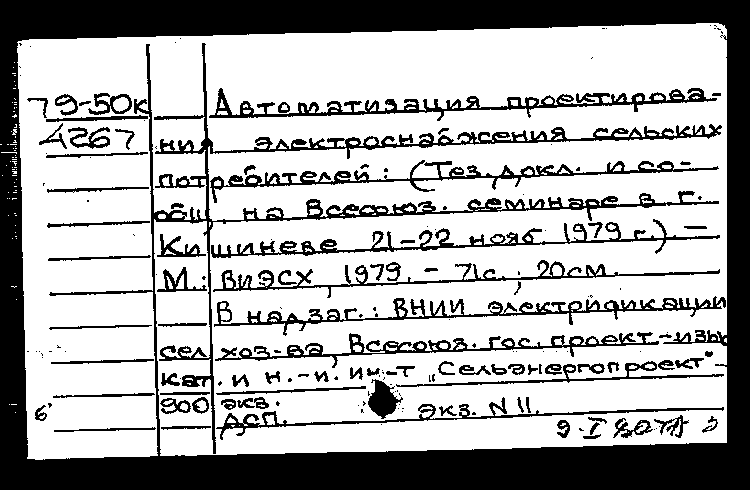 79-50к Автоматизация проектирова-
4267 ния электроснабжения сельских
потребителей: (Тез. докл. и со-
общ. на Всесоюз. семинаре в г.
Кишиневе 21-22 нояб. 1979 г.). —
М.: ВИЭСХ, 1979. - 71с.; 20см.
В надзаг.: ВНИИ электрификации
сел. хоз-ва, Всесоюз. гос. проект.-изы
кат. и н.-и. ин-т „Сельэнергопроект" -
900 экз.
ДСП. экз. N 11.
6